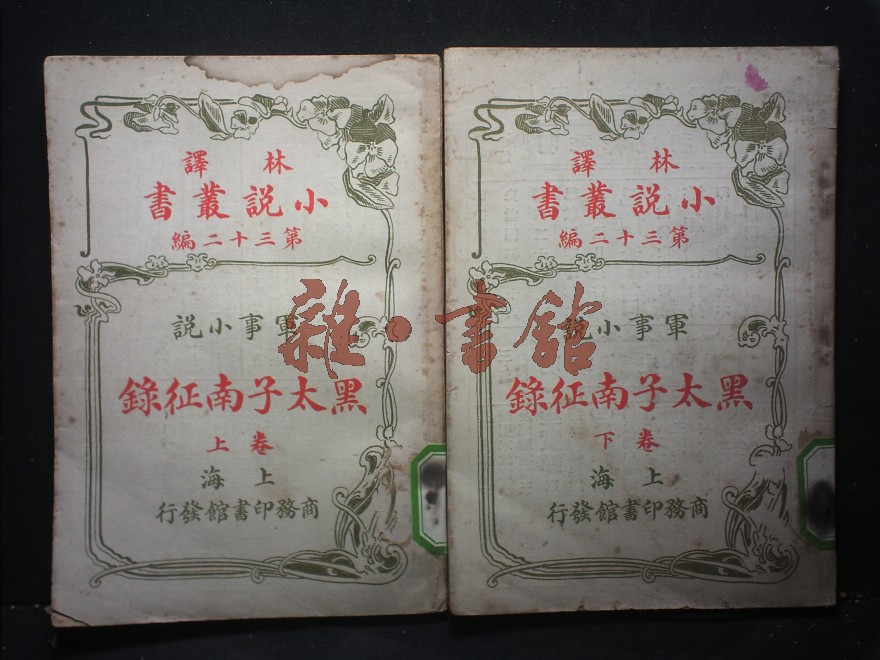 林譯
小說叢書
第三十二編
軍事小說
黑太子南征錄
卷上
上海
商務印書館發行
林譯
小說叢書
第三十二編
軍事小說
黑太子南征錄
卷下
上海
商務印書館發行
雜·書館